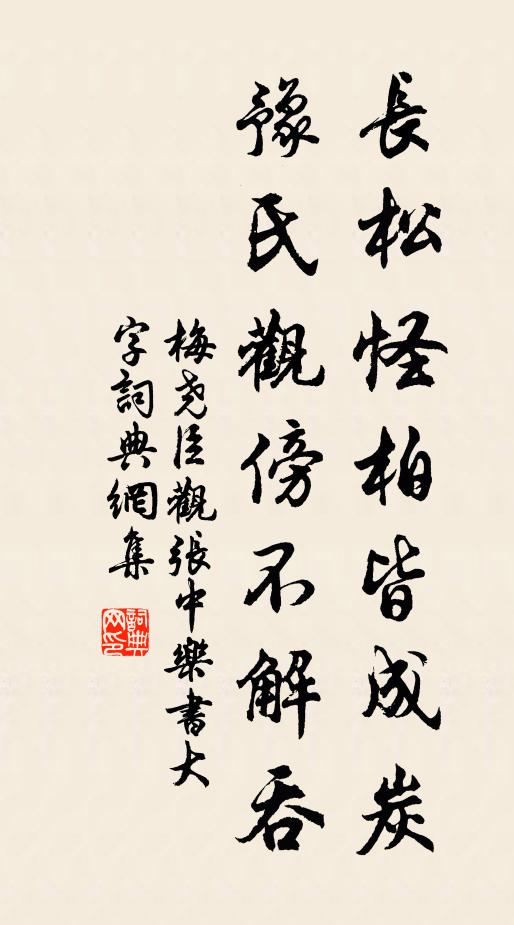 長松怪柏皆成炭
豫氏觀傍不解吞
梅尧臣觀張中樂書大
字詞典網集
詞典
网印